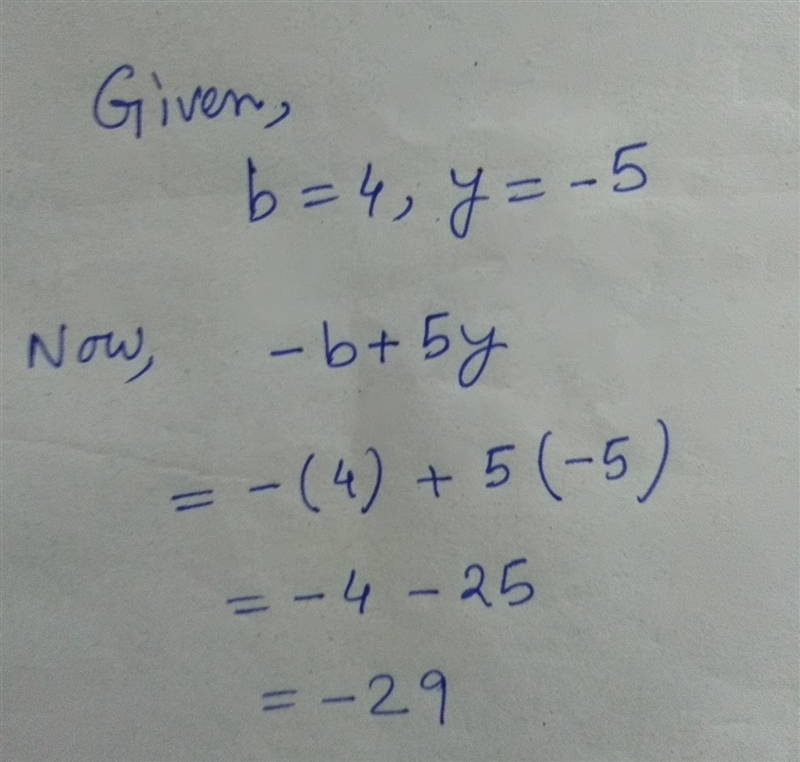 Given,
b = 4, y = -5
Now, -b + 5y
= -(4) + 5(-5)
= -4 - 25
= -29